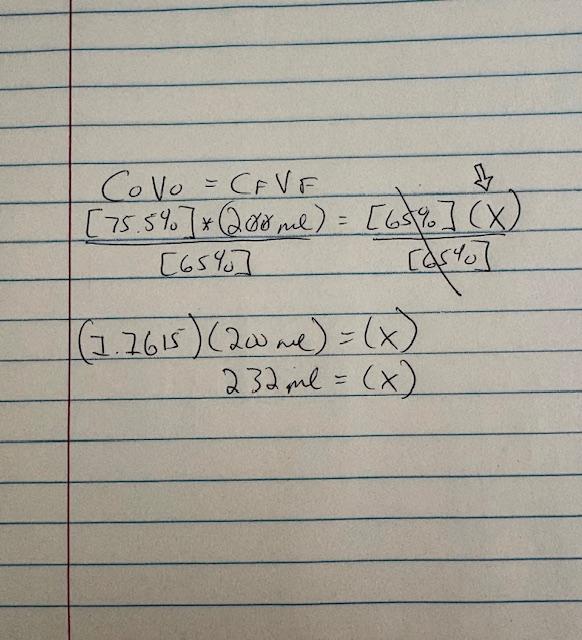 CoVo = CFVF
[75.5%]*(200 ml) = [65%] (X)
[65%] [65%]
(1.1615)(200 ml) = (X)
232 ml = (X)